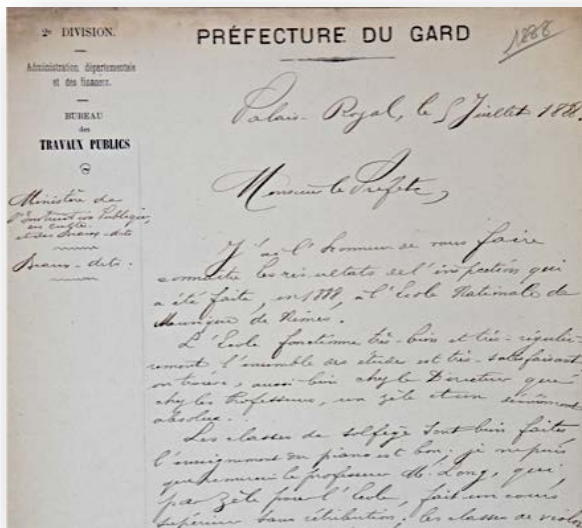 2e DIVISION.
Administration départementale
et des finances.
BUREAU
des
TRAVAUX PUBLICS
Ministère de
l'Instruction Publique,
des Cultes
et des Beaux-Arts
Beaux-Arts.
PRÉFECTURE DU GARD
1888
Palais-Royal, le 5 Juillet 1888.
Monsieur le Préfet,
J'ai l'honneur de vous faire
connaître les résultats de l'inspection qui
a été faite, en 1888, à l'Ecole Nationale de
Musique de Nîmes.
L'Ecole fonctionne très-bien et très-réguliè-
rement l'ensemble des études est très-satisfaisant
on trouve, aussi bien chez le Directeur que
chez les Professeurs, un zèle et un dévouement
absolus.
Les classes de solfège sont bien faites
l'enseignement du piano est bon. je ne puis
que remercier le professeur Mr. Long, qui,
par zèle pour l'Ecole, fait un cours
supérieur sans rétribution. les classes de